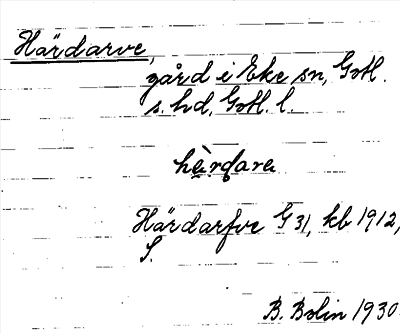 Härdarve,
gård i Eke sn, Gotl.
s. hd, Gotl. l.
Härdarfve G 31, kb 1912,
S.
B. Bolin 1930